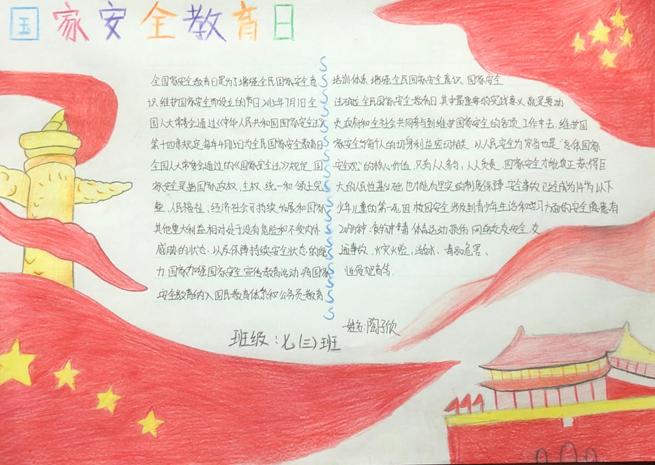 国家安全教育日
全国家安全教育日是为了增强全民国家安全意
识,维护国家安全而设立的节日2015年7月1日全
国人大常委会通过《中华人民共和国国家安全法》
第十四条规定,每年4月15日为全民国家安全教育日
全国人大常委会通过的《国家安全法》规定,国
家安全是指国家政权、主权、统一和领土完
整、人民福祉、经济社会可持续发展和国家
其他重大利益相对处于没有危险和不受内外
威胁的状态,以及保障持续安全状态的能
力.国家加强国家安全宣传教育活动,将国家
安全教育纳入国民教育体系和公务员教育
培训体系,增强全民国家安全意识.国家安全
法确定全民国家安全教育日,其中最重要的实践意义就是要动
员政府和全社会共同参与到维护国家安全的各项工作中去,维护国
家安全
以人民安全为宗旨也是"总体国家
安全观"的核心价值.只有人人参与,人人负责,国家安全才能真正获得巨
少年儿童的第一死因.校园安全涉及到青少年生活和学习方面的安全隐患有
20多种:食物中毒、体育运动损伤、网络交友安全、交
通事故、火灾火险、溺水、毒品危害、
性侵犯等.
班级:七(三)班
姓名:陶子欣